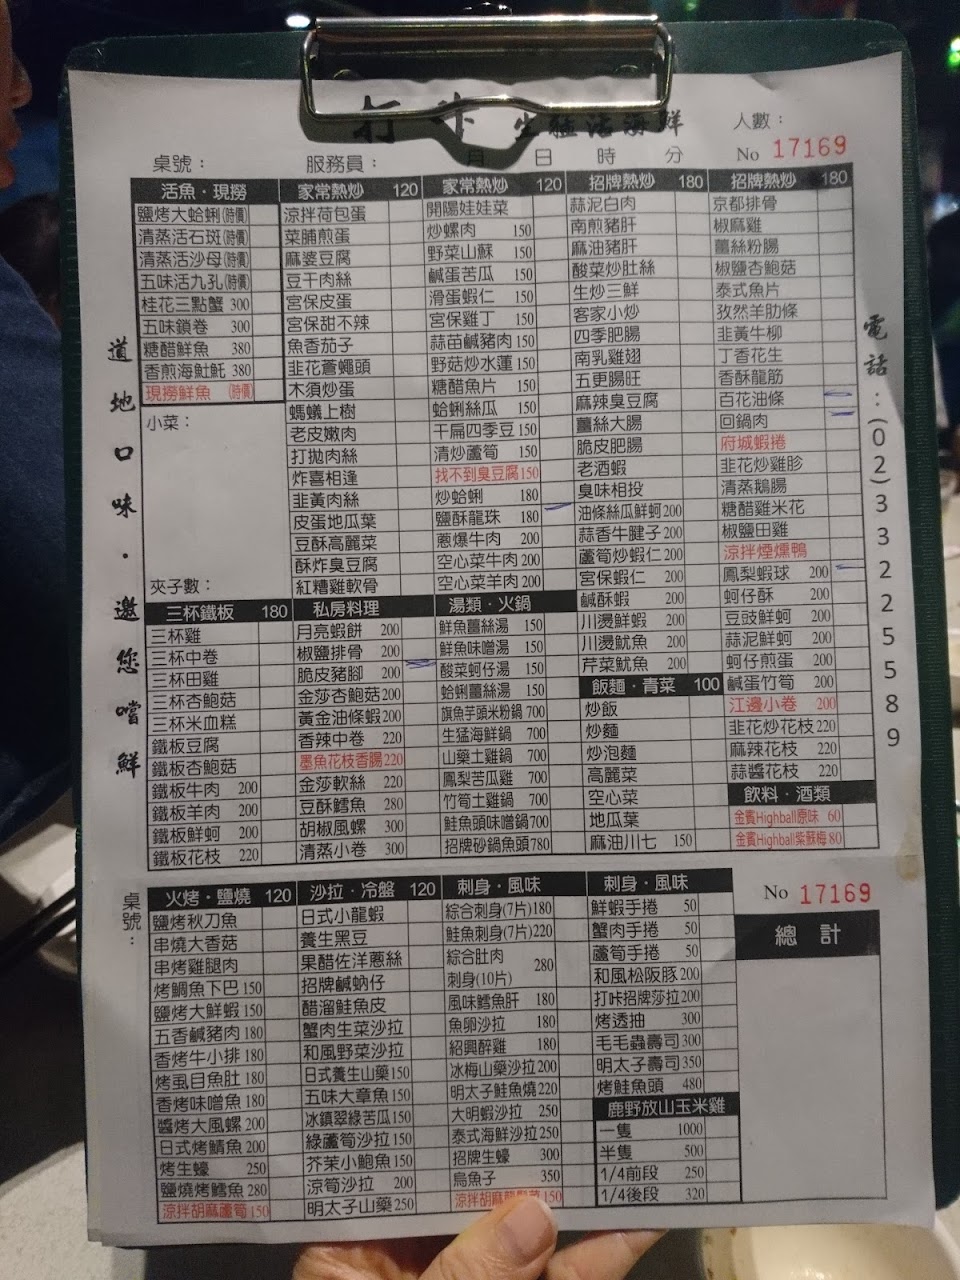 打 卡 生猛活海鮮
人數：
桌號： 服務員： 月 日 時 分 No 17169
道地口味·邀您嚐鮮
電話：(02)33225589
活魚·現撈
鹽烤大蛤蜊(時價)
清蒸活石斑(時價)
清蒸活沙母(時價)
五味活九孔(時價)
桂花三點蟹 300
五味鎖卷 300
糖醋鮮魚 380
香煎海魟魠 380
現撈鮮魚 (時價)
小菜：
夾子數：
家常熱炒 120
涼拌荷包蛋
菜脯煎蛋
麻婆豆腐
豆干肉絲
宮保皮蛋
宮保甜不辣
魚香茄子
韭花蒼蠅頭
木須炒蛋
螞蟻上樹
老皮嫩肉
打拋肉絲
炸喜相逢
韭黃肉絲
皮蛋地瓜葉
豆酥高麗菜
酥炸臭豆腐
紅糟雞軟骨
家常熱炒 120
開陽娃娃菜
炒螺肉 150
野菜山蘇 150
鹹蛋苦瓜 150
滑蛋蝦仁 150
宮保雞丁 150
蒜苗鹹豬肉 150
野菇炒水蓮 150
糖醋魚片 150
蛤蜊絲瓜 150
干扁四季豆 150
清炒蘆筍 150
找不到臭豆腐 150
炒蛤蜊 180
鹽酥龍珠 180
蔥爆牛肉 200
空心菜牛肉 200
空心菜羊肉 200
招牌熱炒 180
蒜泥白肉
南煎豬肝
麻油豬肝
酸菜炒肚絲
生炒三鮮
客家小炒
四季肥腸
南乳雞翅
五更腸旺
麻辣臭豆腐
薑絲大腸
脆皮肥腸
老酒蝦
臭味相投
油條絲瓜鮮蚵 200
蒜香牛腱子 200
蘆筍炒蝦仁 200
宮保蝦仁 200
鹹酥蝦 200
川燙鮮蝦 200
川燙魷魚 200
芹菜魷魚 200
招牌熱炒 180
京都排骨
椒麻雞
薑絲粉腸
椒鹽杏鮑菇
泰式魚片
孜然羊肋條
韭黃牛柳
丁香花生
香酥龍筋
百花油條
回鍋肉
府城蝦捲
韭花炒雞胗
清蒸鵝腸
糖醋雞米花
椒鹽田雞
涼拌煙燻鴨
鳳梨蝦球 200
蚵仔酥 200
豆豉鮮蚵 200
蒜泥鮮蚵 200
蚵仔煎蛋 200
鹹蛋竹筍 200
江邊小卷 200
韭花炒花枝 220
麻辣花枝 220
蒜醬花枝 220
三杯鐵板 180
三杯雞
三杯中卷
三杯田雞
三杯杏鮑菇
三杯米血糕
鐵板豆腐
鐵板杏鮑菇
鐵板牛肉 200
鐵板羊肉 200
鐵板鮮蚵 200
鐵板花枝 220
私房料理
月亮蝦餅 200
椒鹽排骨 200
脆皮豬腳 200
金莎杏鮑菇 200
黃金油條蝦 200
香辣中卷 220
墨魚花枝香腸 220
金莎軟絲 220
豆酥鱈魚 280
胡椒風螺 300
清蒸小卷 300
湯類·火鍋
鮮魚薑絲湯 150
鮮魚味噌湯 150
酸菜蚵仔湯 150
蛤蜊薑絲湯 150
旗魚芋頭米粉鍋 700
生猛海鮮鍋 700
山藥土雞鍋 700
鳳梨苦瓜雞 700
竹筍土雞鍋 700
鮭魚頭味噌鍋 700
招牌砂鍋魚頭 780
飯麵·青菜 100
炒飯
炒麵
炒泡麵
高麗菜
空心菜
地瓜葉
麻油川七 150
飲料·酒類
金賓Highball原味 60
金賓Highball紫蘇梅 80
桌號：
火烤·鹽燒 120
鹽烤秋刀魚
串燒大香菇
串烤雞腿肉
烤鯛魚下巴 150
鹽烤大鮮蝦 150
五香鹹豬肉 180
香烤牛小排 180
烤虱目魚肚 180
香烤味噌魚 180
醬烤大風螺 200
日式烤鯖魚 200
烤生蠔 250
鹽燒烤鱈魚 280
涼拌胡麻蘆筍 150
沙拉·冷盤 120
日式小龍蝦
養生黑豆
果醋佐洋蔥絲
招牌鹹蚋仔
醋溜鮭魚皮
蟹肉生菜沙拉
和風野菜沙拉
日式養生山藥 150
五味大章魚 150
冰鎮翠綠苦瓜 150
綠蘆筍沙拉 150
芥茉小鮑魚 150
涼筍沙拉 200
明太子山藥 250
刺身·風味
綜合刺身(7片) 180
鮭魚刺身(7片) 220
綜合肚肉
刺身(10片) 280
風味鱈魚肝 180
魚卵沙拉 180
紹興醉雞 180
冰梅山藥沙拉 200
明太子鮭魚燒 220
大明蝦沙拉 250
泰式海鮮沙拉 250
招牌生蠔 300
烏魚子 350
涼拌胡麻 150
刺身·風味
鮮蝦手捲 50
蟹肉手捲 50
蘆筍手捲 50
和風松阪豚 200
打咔招牌莎拉 200
烤透抽 300
毛毛蟲壽司 300
明太子壽司 350
烤鮭魚頭 480
鹿野放山玉米雞
一隻 1000
半隻 500
1/4前段 250
1/4後段 320
No 17169
總 計